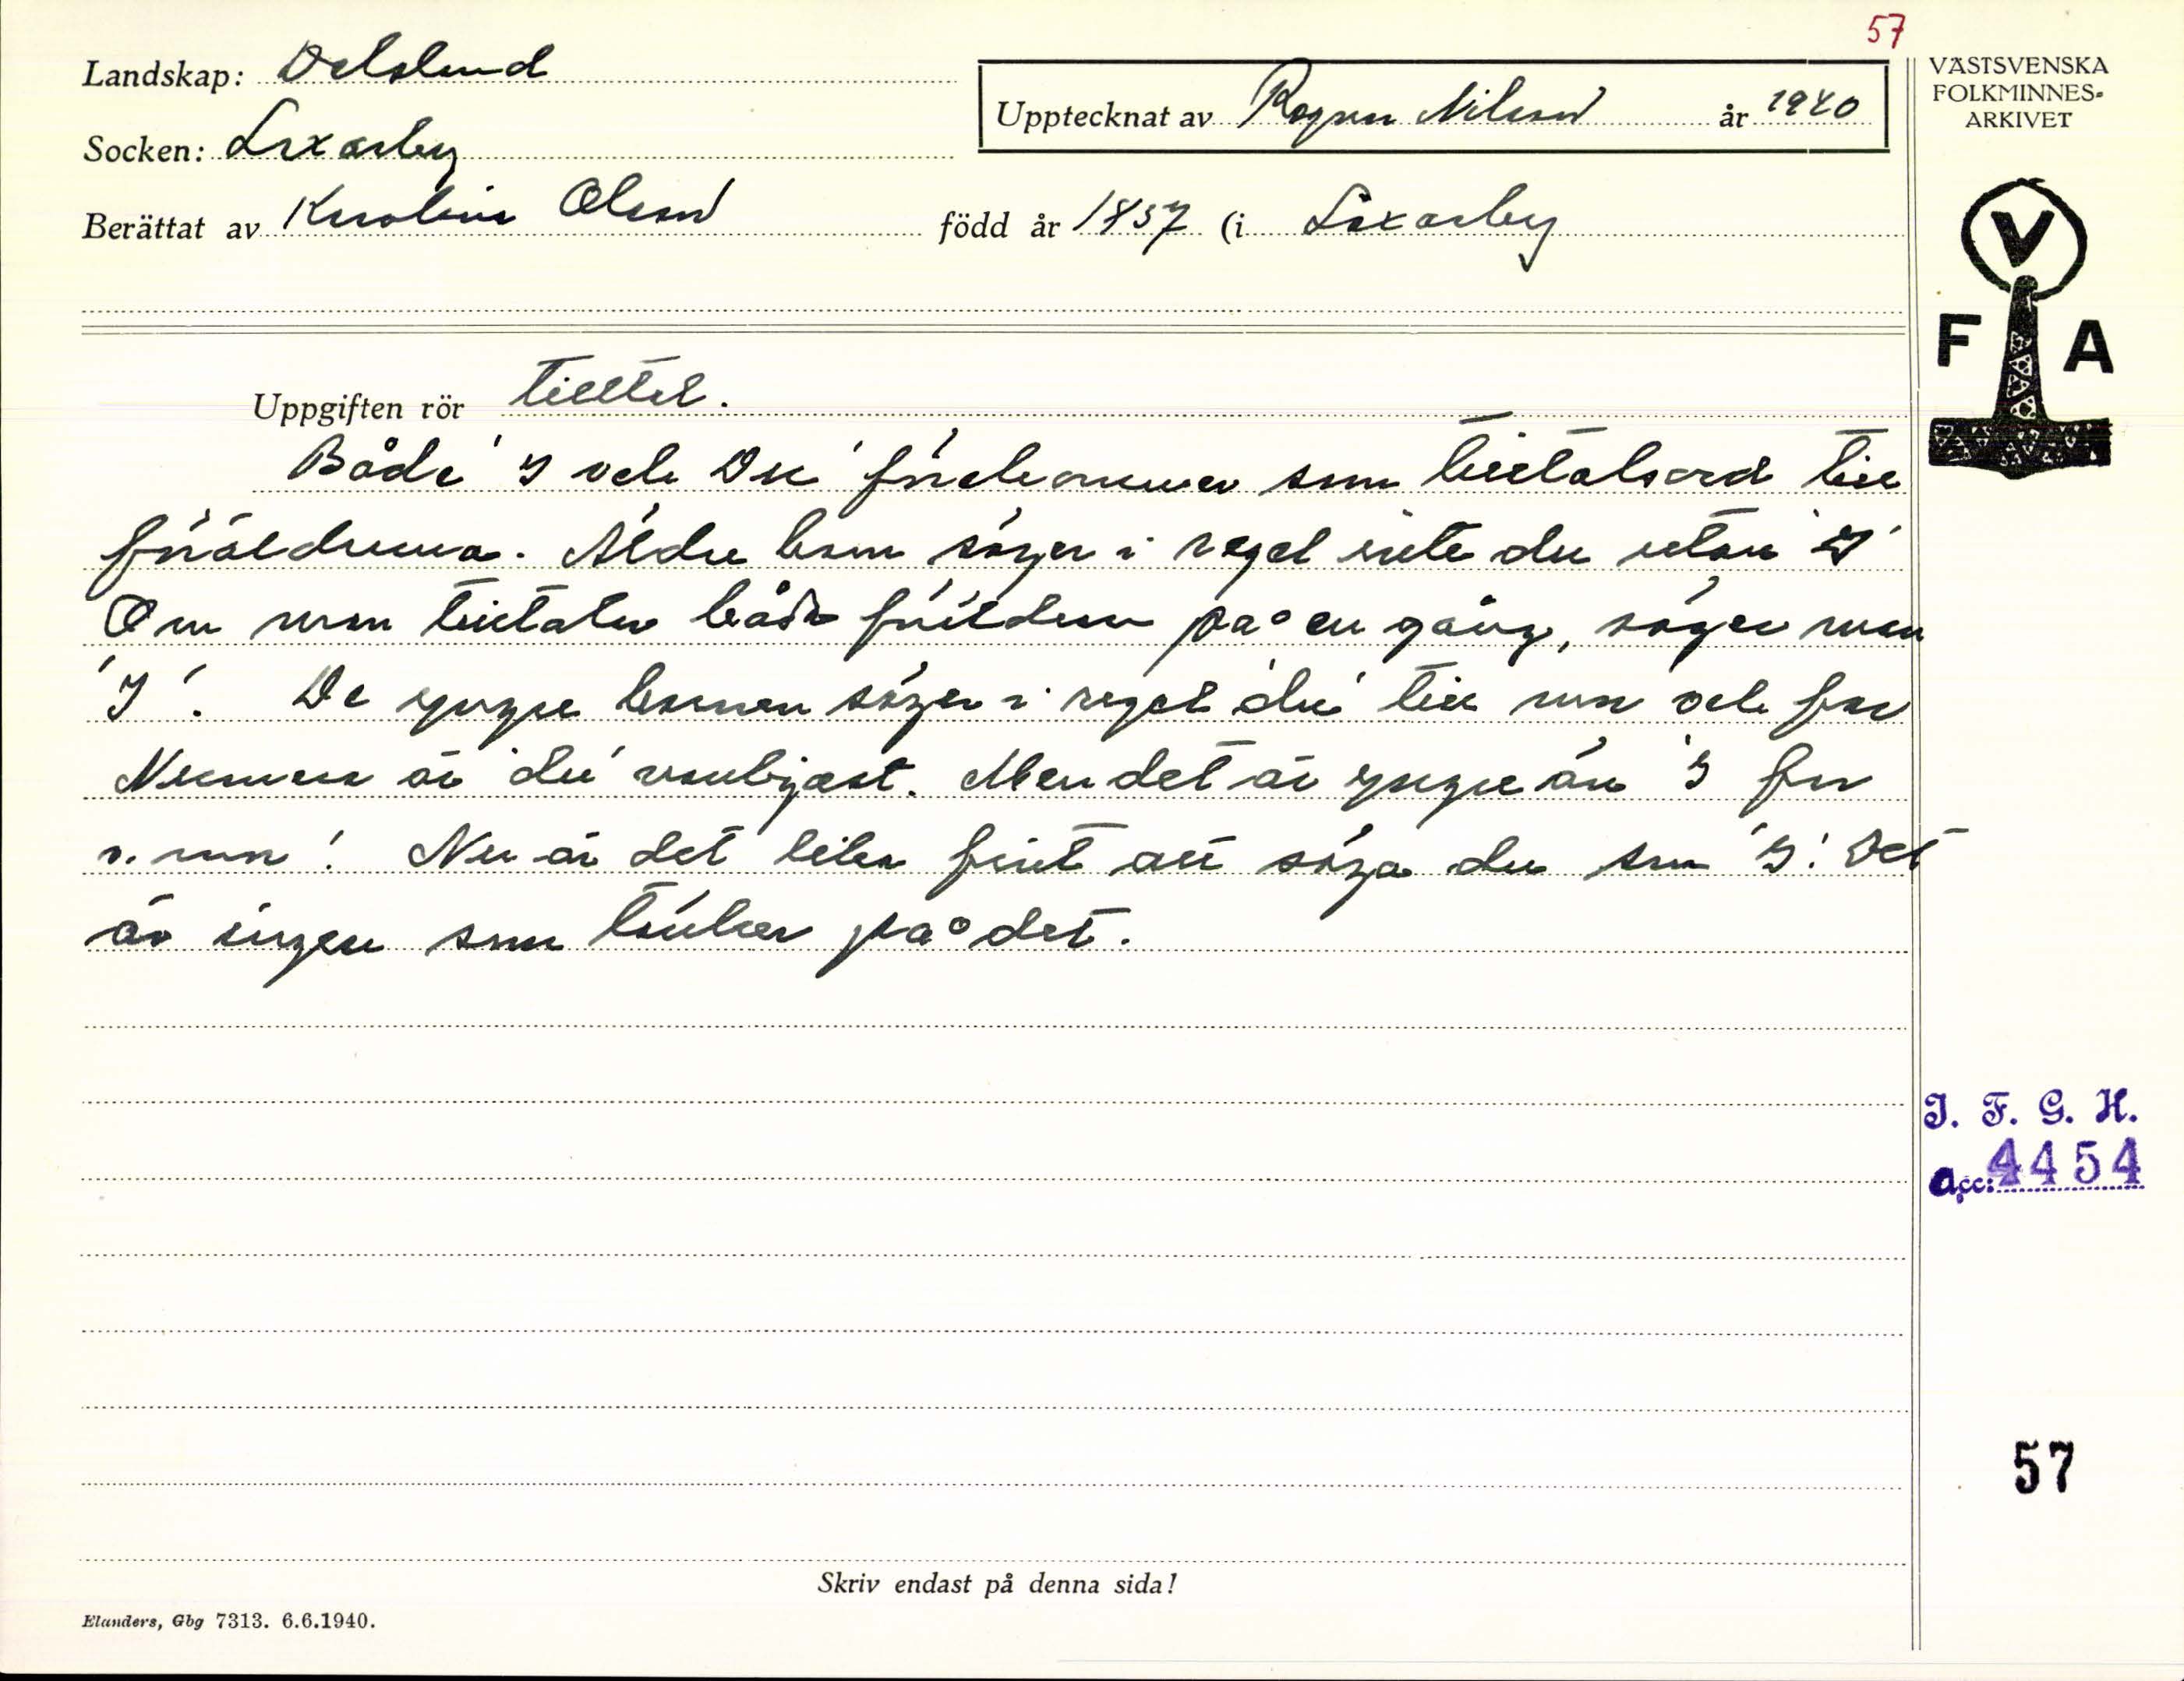 57
Landskap: Dalsland
Upptecknat av Ragnar Nilsson år 1940
Socken: Laxarby
Berättat av Karolina Olsson född år 1857 (i Laxarby
VÄSTSVENSKA
FOLKMINNES-
ARKIVET
V
F A
Uppgiften rör Tilltal.
Både 'I och Du' förekommer som tilltalsord till
föräldrarna. Äldre barn säger i regel inte du utan 'I'
Om man tilltalar båda föräldrarna på en gång, säger man
'I'. De yngre barnen säger i regel 'du' till mor och far
Numera är 'du' vanligast. Men det är yngre än 'I far
o. mor'. Nu är det lika fint att säga du som 'I'. Det
är ingen som tänker på det.
I. F. G. H.
Acc: 4454
57
Skriv endast på denna sida!
Elanders, Gbg 7313. 6.6.1940.